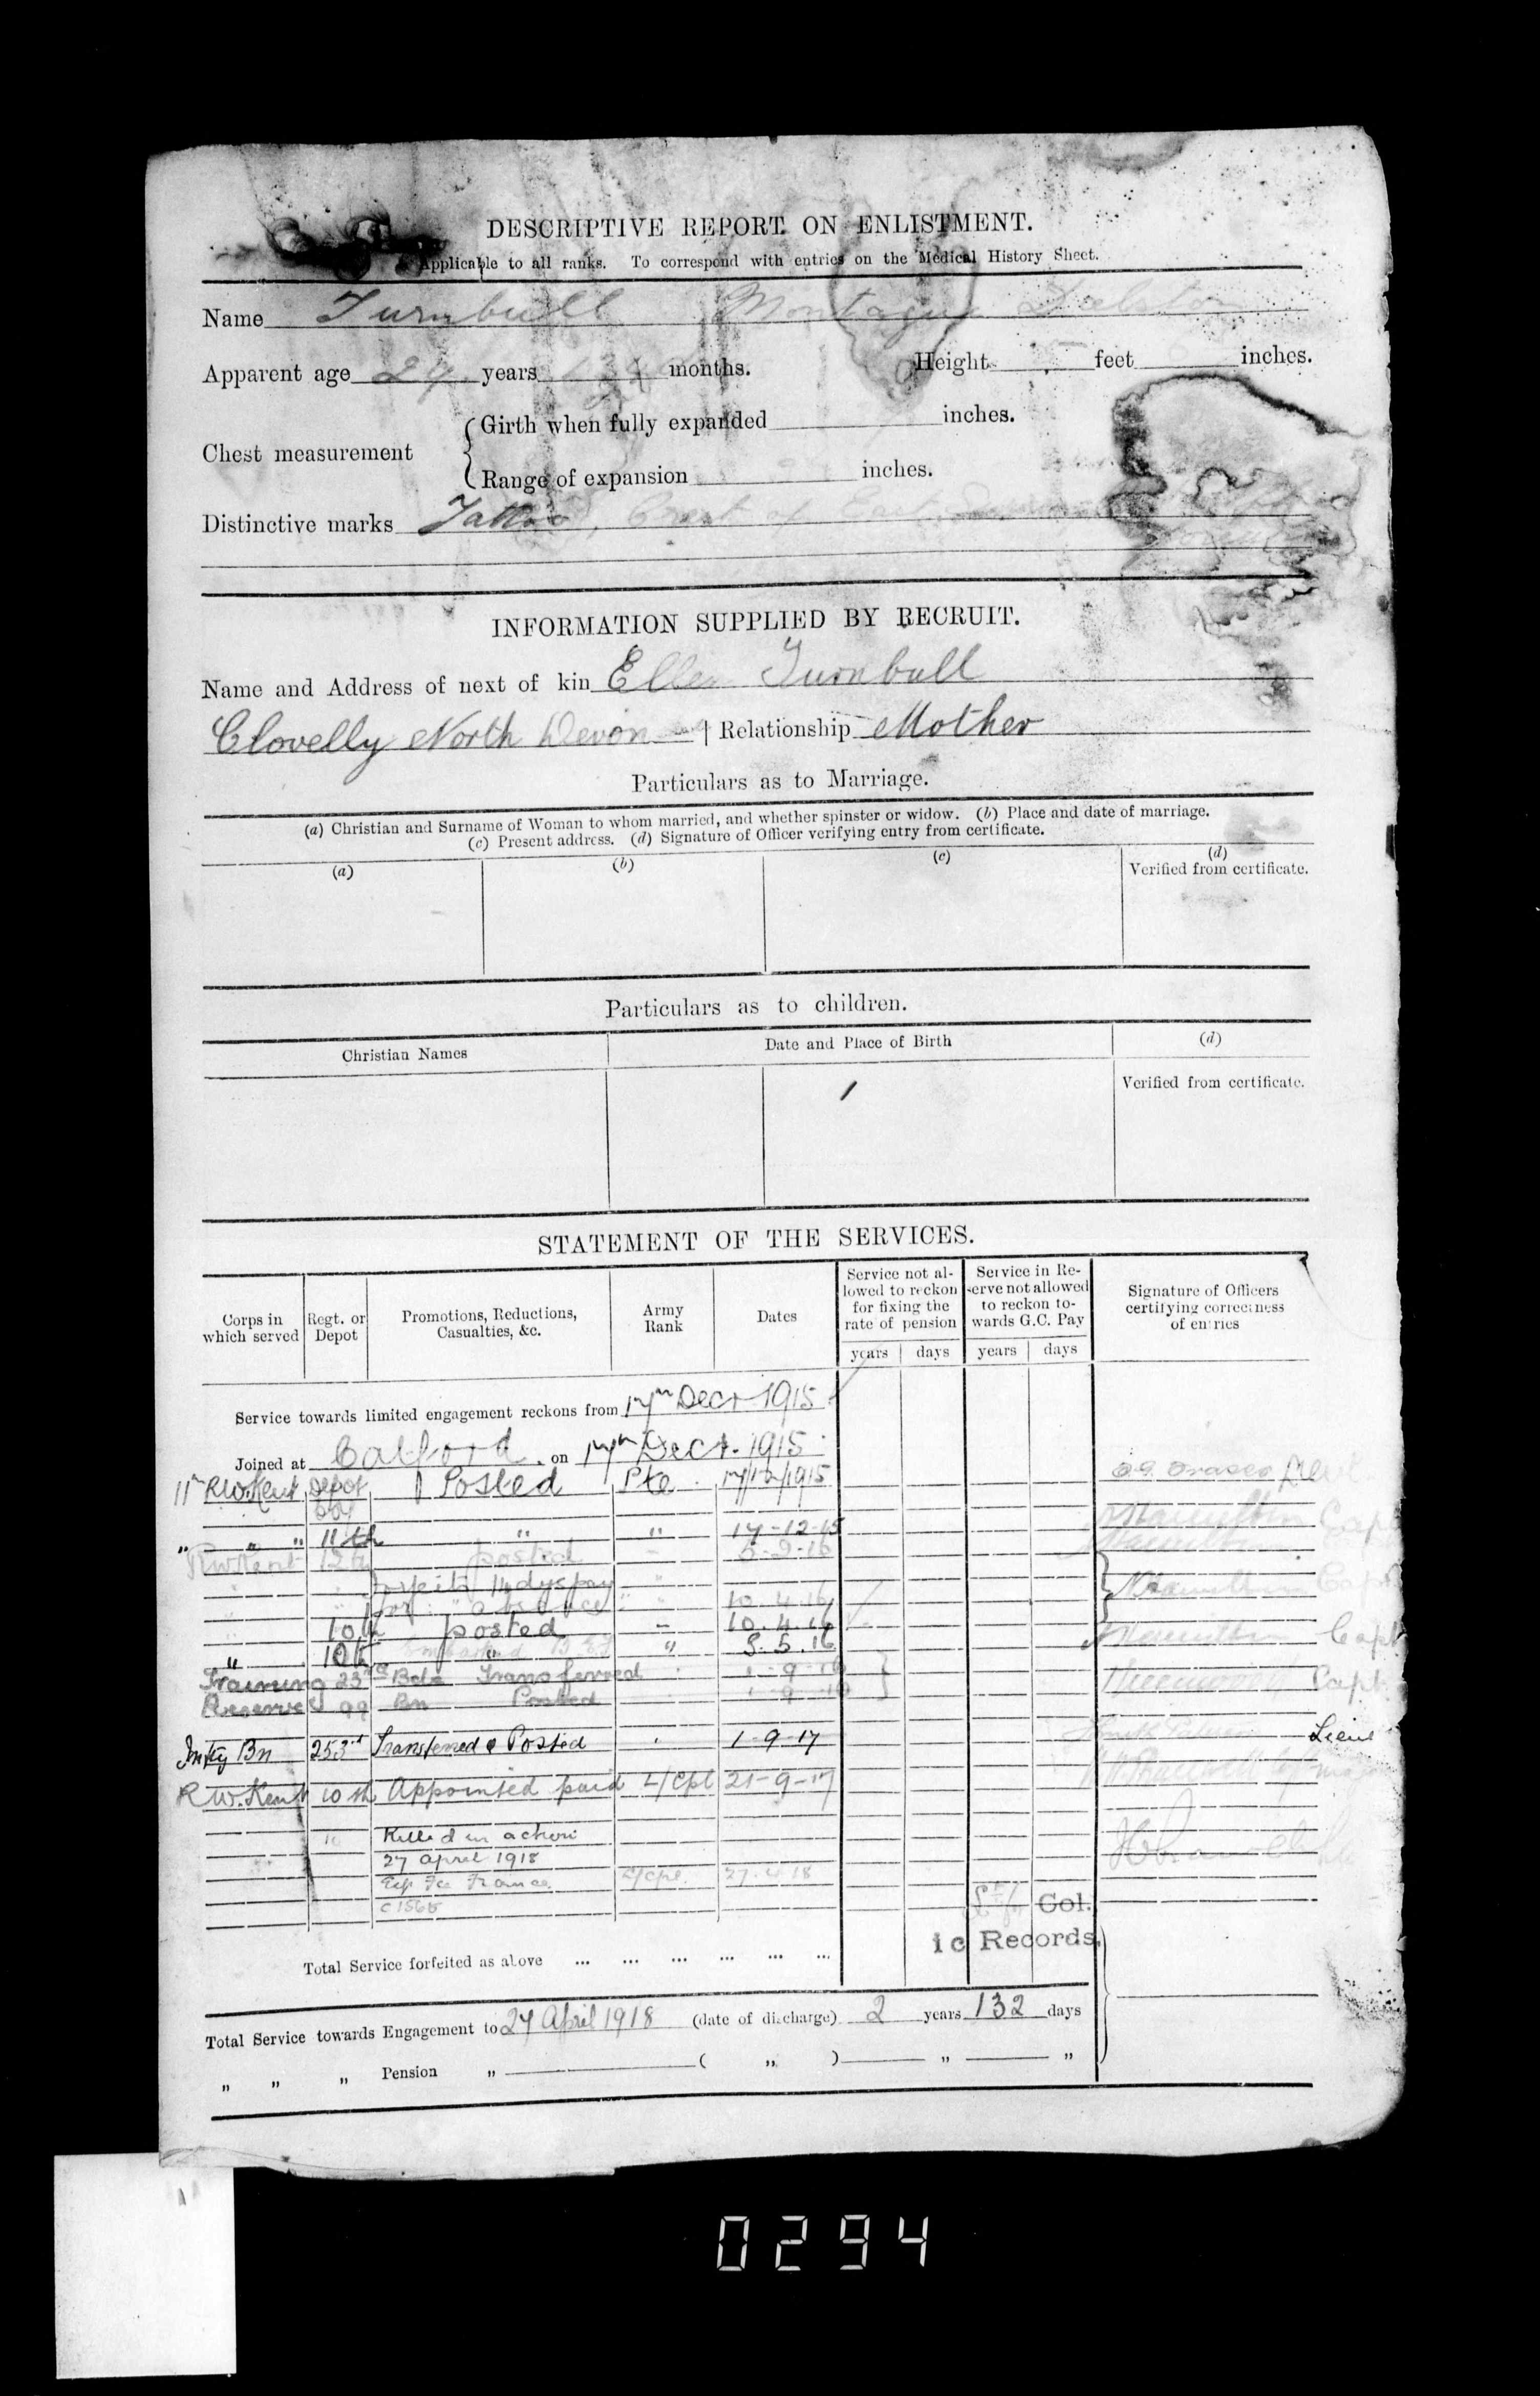 DESCRIPTIVE REPORT ON ENLISTMENT.
Applicable to all ranks. To correspond with entries on the Medical History Sheet.
Name Turnbull Montague
Apparent age 24 years months. Height feet inches.
Chest measurement { Girth when fully expanded inches.
Range of expansion inches.
Distinctive marks Tattoo, Crest of East
INFORMATION SUPPLIED BY RECRUIT.
Name and Address of next of kin Ellen Turnbull
Clovelly North Devon | Relationship Mother
Particulars as to Marriage.
(a) Christian and Surname of Woman to whom married, and whether spinster or widow. (b) Place and date of marriage.
(c) Present address. (d) Signature of Officer verifying entry from certificate.
(a) (b) (c) (d)
Verified from certificate.
Particulars as to children.
Christian Names Date and Place of Birth (d)
Verified from certificate.
STATEMENT OF THE SERVICES.
Corps in which served Regt. or Depot Promotions, Reductions, Casualties, &c. Army Rank Dates Service not allowed to reckon for fixing the rate of pension Service in Reserve not allowed to reckon towards G.C. Pay Signature of Officers certifying correctness of entries
years days years days
Service towards limited engagement reckons from 17th Decr 1915
Joined at Catford on 17th Decr. 1915
11th R.W.Kent Depot Posted Pte 17/12/1915
" " " 11th " " 17-12-15 Hamilton Capt
R.W.Kent 12th posted 5-2-16 Hamilton
forfeits 14 dys pay
for absence 10.4.16 Hamilton Capt
10th posted 10.4.16
" 10th Embarked B.E.F " 5.5.16 Hamilton Capt
Training 23rd Bde Transferred 1-9-16
Reserve 99 Bn Posted 1-9-16 Greenwood Capt
Infty Bn 253rd Transferred & Posted 1-9-17 Lieut
R.W.Kent 10th Appointed paid L/Cpl 21-9-17
" Killed in action
27 April 1918
Exp Fce France L/Cpl. 27.4.18
Col.
i c Records.
Total Service forfeited as above ... ... ... ... ... ...
Total Service towards Engagement to 27 April 1918 (date of discharge) 2 years 132 days
" " " Pension " ( " ) " "
0294